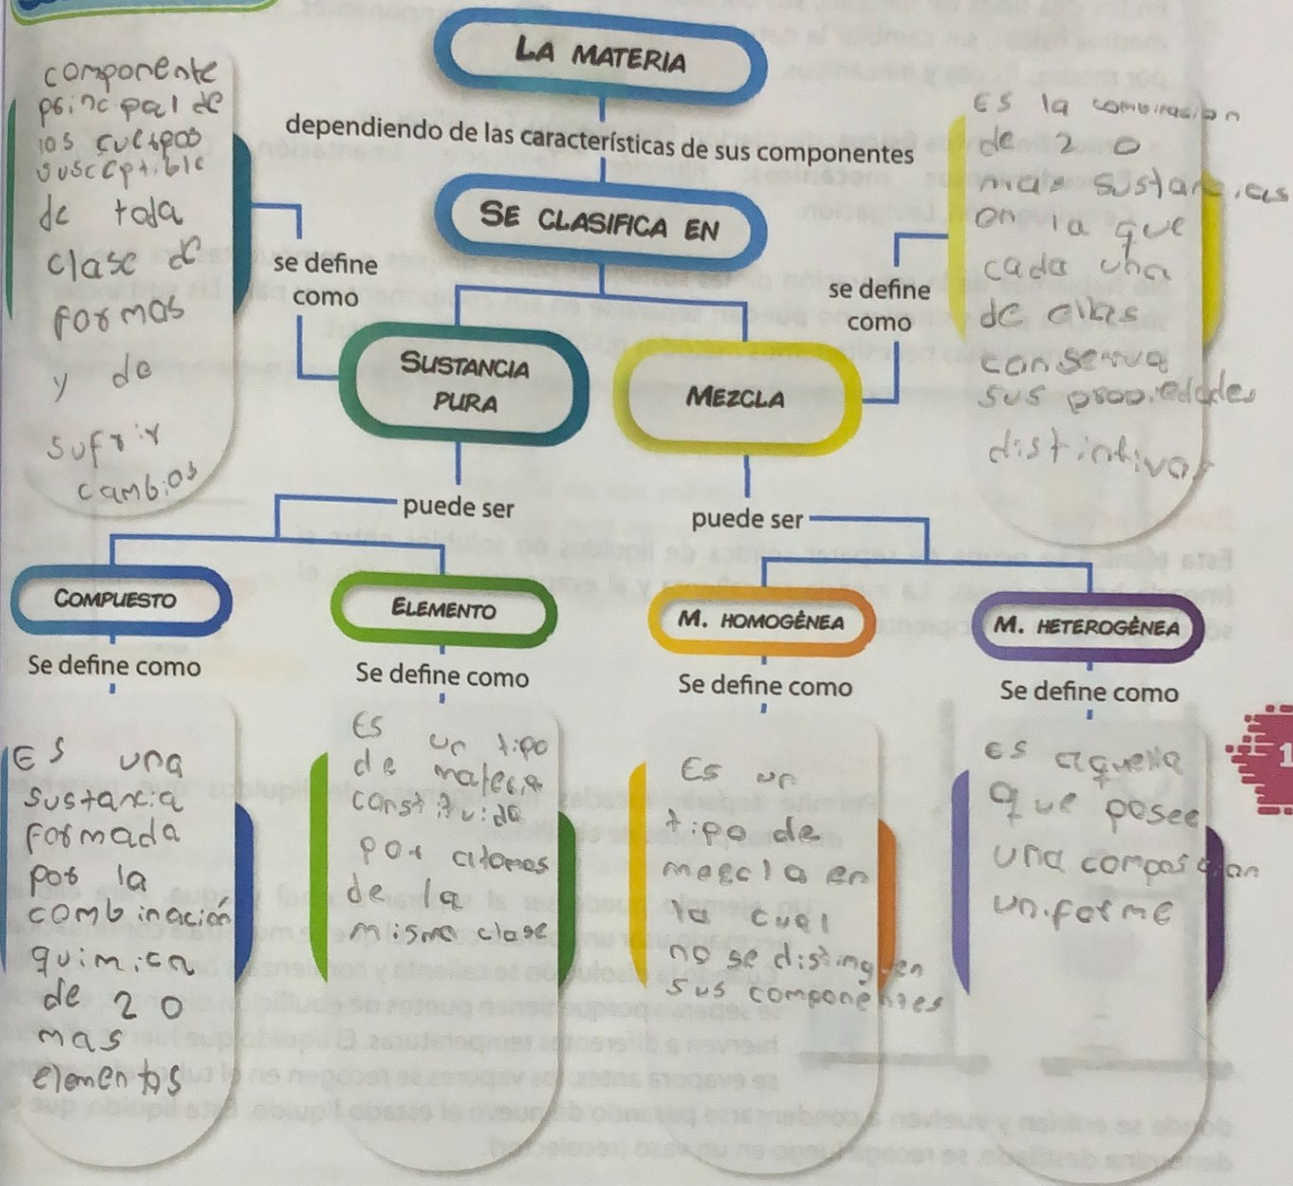 LA MATERIA
dependiendo de las características de sus componentes
SE CLASIFICA EN
componente
principal de
los cuerpos
susceptible
de toda
clase de
formas
y de
sufrir
cambios
se define
como
SUSTANCIA
PURA
MEZCLA
se define
como
ES la combinacion
de 2 o
mas sustancias
en la que
cada una
de ellas
conserva
sus propiedades
distintivas
puede ser
puede ser
COMPUESTO
ELEMENTO
M. HOMOGÉNEA
M. HETEROGÉNEA
Se define como
Se define como
Se define como
Se define como
ES una
sustancia
formada
por la
combinación
quimica
de 2 o
mas
elementos
ES un tipo
de materia
constituida
por atomos
de la
misma clase
Es un
tipo de
mezcla en
la cual
no se distinguen
sus componentes
ES aquella
que posee
una composicion
uniforme
1